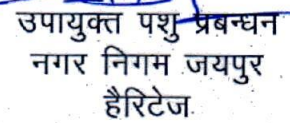 उपायुक्त पशु प्रबन्धन
नगर निगम जयपुर
हैरिटेज.